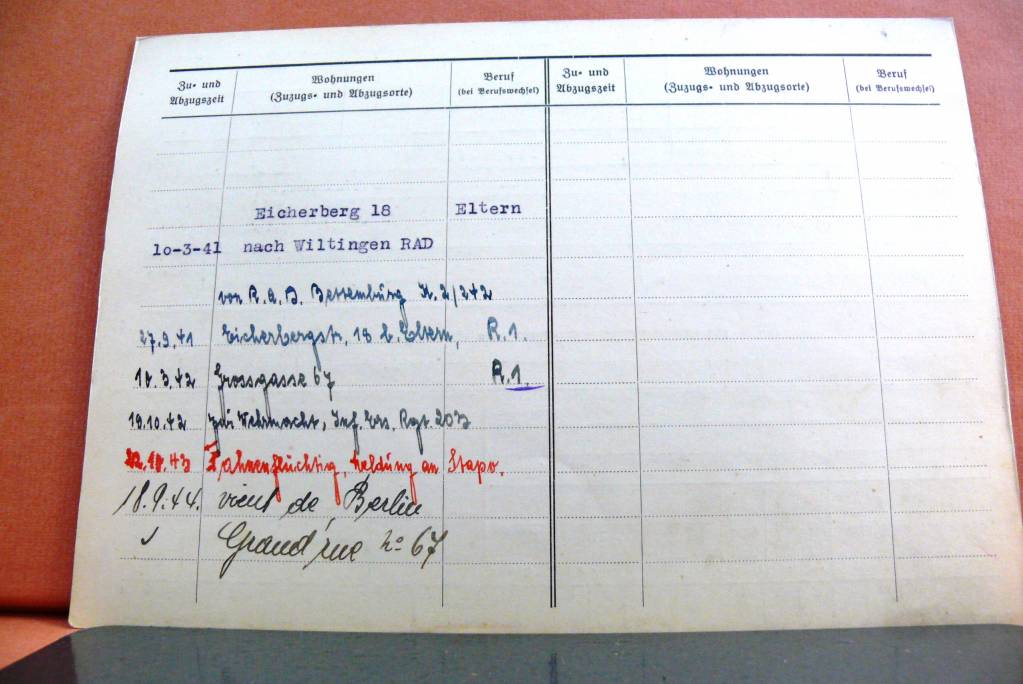 Zu- und Abzugszeit
Wohnungen (Zuzugs- und Abzugsorte)
Beruf (bei Berufswechsel)
Zu- und Abzugszeit
Wohnungen (Zuzugs- und Abzugsorte)
Beruf (bei Berufswechsel)
Eicherberg 18 Eltern
10-3-41 nach Wiltingen RAD
von R.A.D. Bettemburg K. 2/242
27.9.41 Eicherbergstr. 18 b. Eltern, R.1.
Grossgasse 67 R.1.
19.10.42 zur Wehrmacht, Inf. Ers. Rgt. 203
Fahnenflüchtig, Meldung an Stapo.
18.9.44. vient de Berlin
Grand'rue no 67